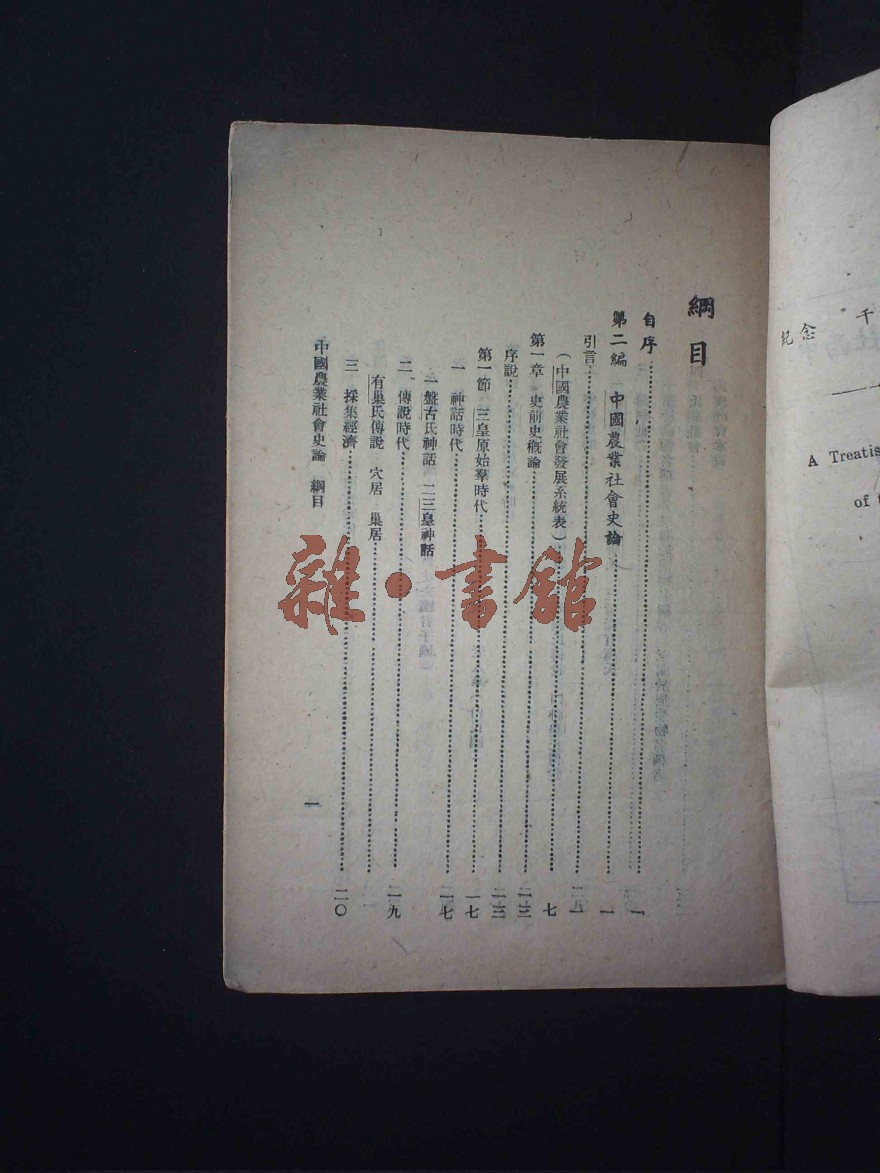 綱目
自序……一
第二編 中國農業社會史論……一
引言……一
（中國農業社會發展系統表）……七
第一章 史前史概論……一三
序說……一三
第一節 三皇原始羣時代……一七
一 神話時代……一七
一盤古氏神話 二三皇神話
二 傳說時代……一九
有巢氏傳說 穴居 巢居
三 採集經濟……二〇
中國農業社會史論 綱目
一
雜·書館
紀念 千
A Treatis
of t